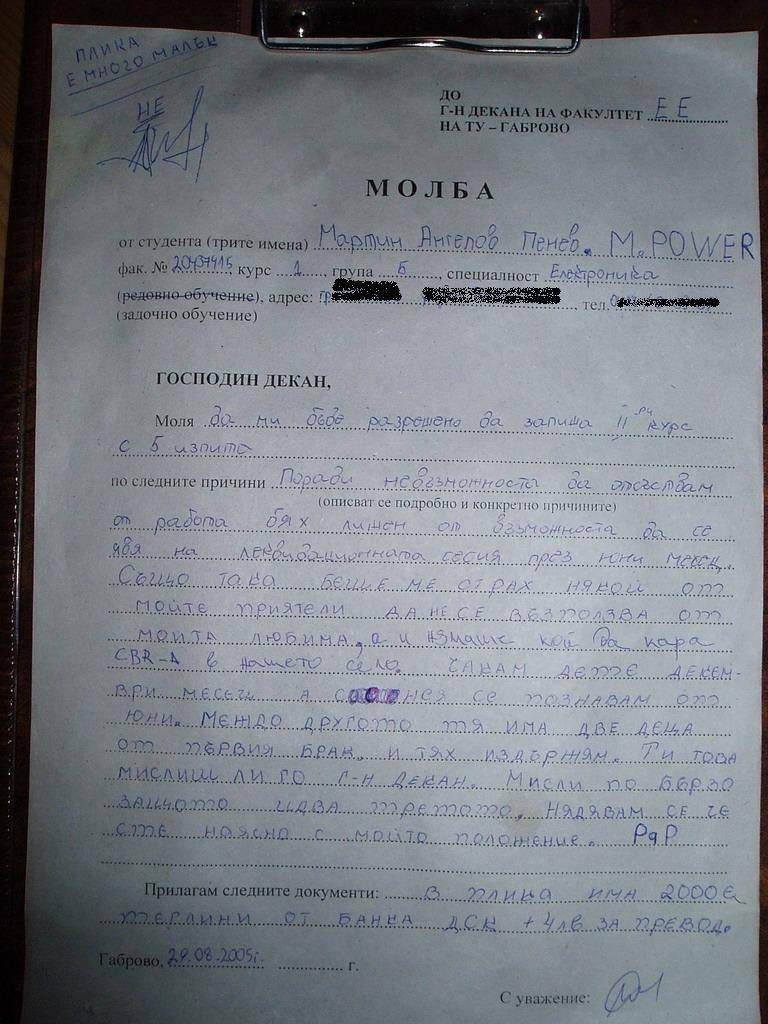 ПЛИКА
Е МНОГО МАЛЪК
НЕ
ДО
Г-Н ДЕКАНА НА ФАКУЛТЕТ ЕЕ
НА ТУ – ГАБРОВО
МОЛБА
от студента (трите имена) Мартин Ангелов Пенев. M.POWER
фак. № 20437415 курс 1, група Б, специалност Електроника
(редовно обучение), адрес: гр тел.
(задочно обучение)
ГОСПОДИН ДЕКАН,
Моля да ми бъде разрешено да запиша II ри курс
с 5 изпита
по следните причини Поради невъзможноста да отсъствам
(описват се подробно и конкретно причините)
от работа бях лишен от възможноста да се
явя на леквидационната сесия през юни месец.
Също така беше ме страх някой от
мойте приятели да не се възползва от
моита любима, а и нямаше кой да кара
CBR-А в нашето село. Чакам дете декем-
ври месец а с нея се познавам от
юни. Междо другото тя има две деца
от първия брак, и тях издържям. Ти това
мислиш ли го г-н Декан. Мисли по бързо
защото идва третото. Нядявам се че
сте наясно с мойто положение. РдР
Прилагам следните документи: в плика има 2000 с
терлини от банка ДСК + 4лв за превод.
Габрово, 29.08.2005г. г.
С уважение: